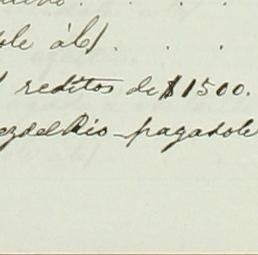 ole á los . . .
reditos de $1500.
ezdelRio pagadole